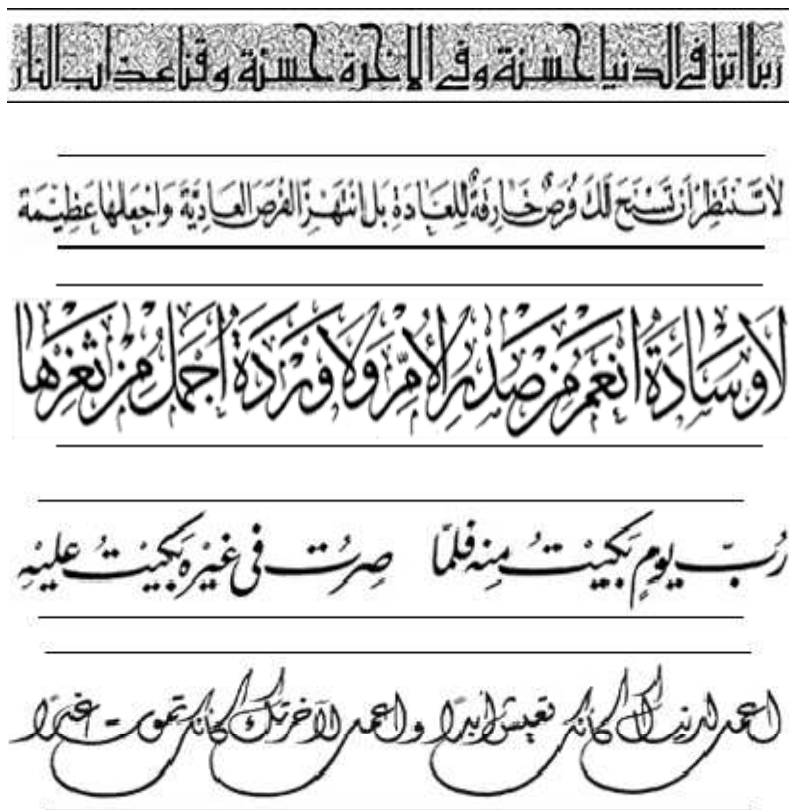 ربنا اتنا في الدنيا حسنة وفي الاخرة حسنة وقنا عذاب النار
لَا تَنْتَظِرْ أَنْ تَسْنَحَ لَكَ فُرَصٌ خَارِقَةٌ لِلْعَادَةِ بَلِ انْتَهِزِ الفُرَصَ العَادِيَّةَ وَاجْعَلْهَا عَظِيْمَة
لَا وِسَادَةَ أَنْعَمُ مِنْ صَدْرِ الأُمِّ وَلَا وَرْدَةَ أَجْمَلُ مِنْ ثَغْرِهَا
رُبّ يومٍ بَكيْتُ مِنه فلمّا صِرتُ في غيْرِه بَكيْتُ عليْهِ
اعمل لدنياك كأنك تعيش أبدًا واعمل لآخرتك كأنك تموت غدًا